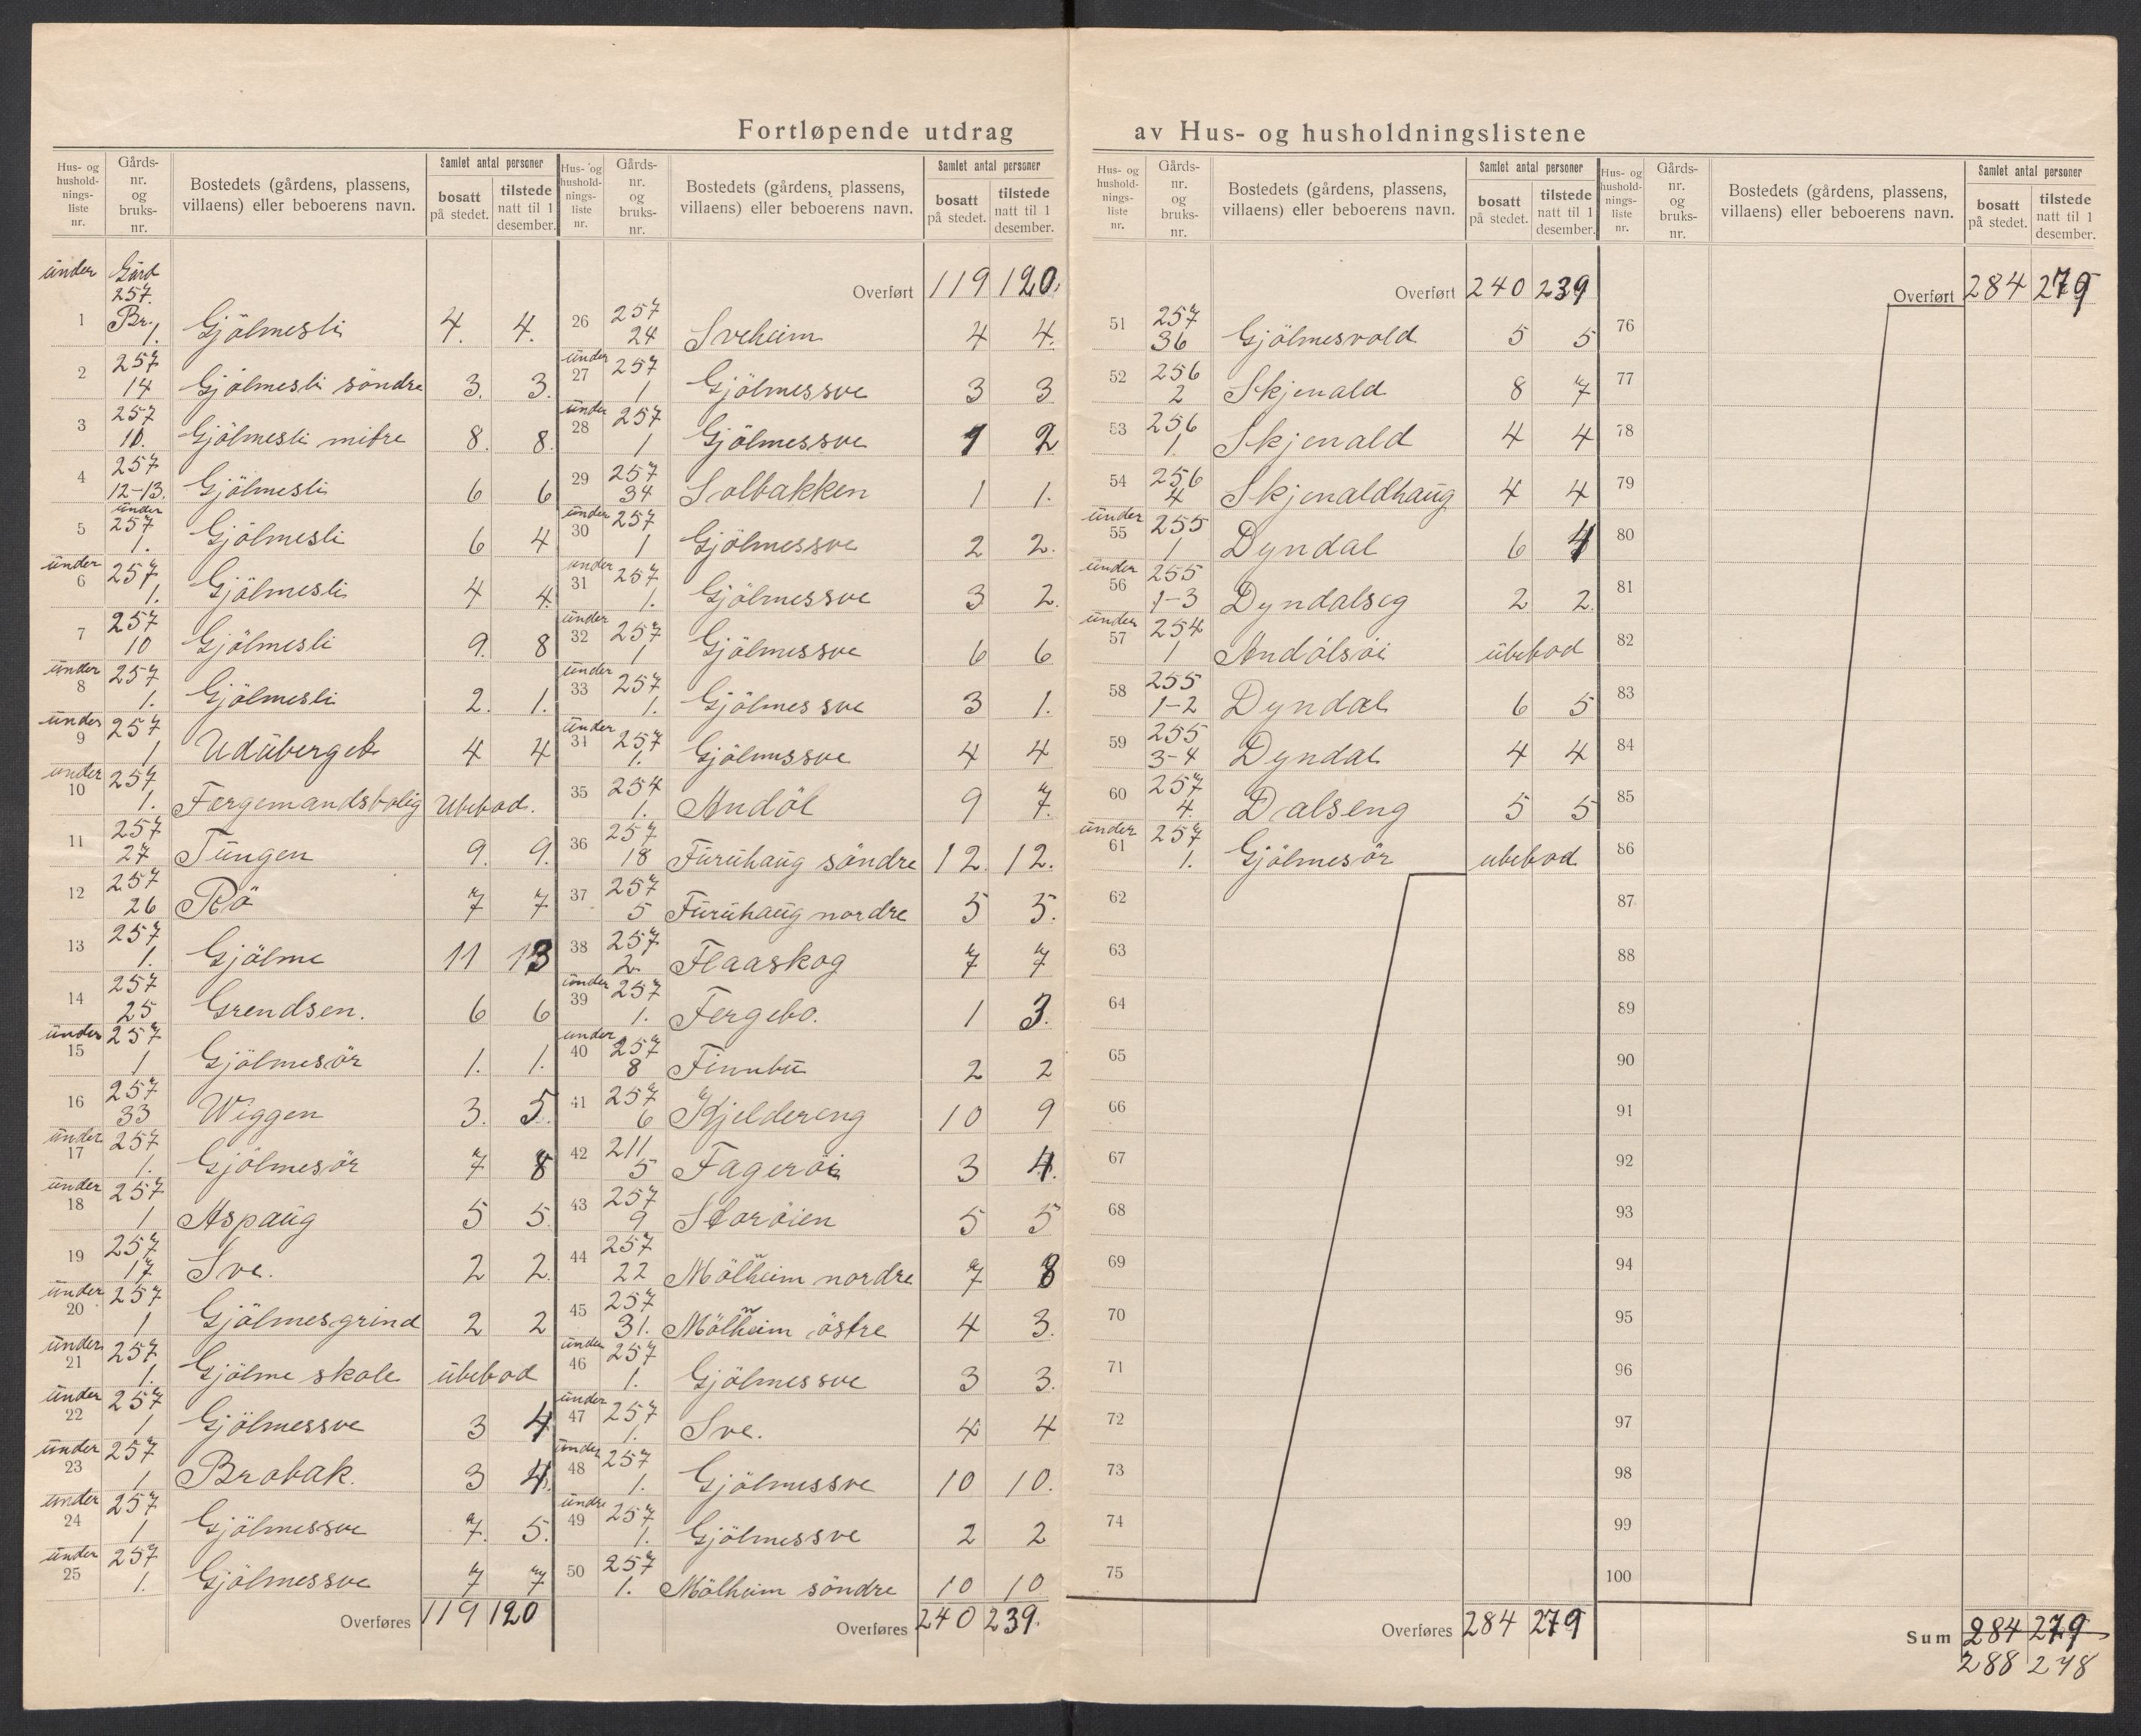 Fortløpende utdrag av Hus- og husholdningslistene
Hus- og husholdningsliste nr. | Gårds- nr. og bruks- nr. | Bostedets (gårdens, plassens, villaens) eller beboerens navn. | Samlet antal personer: bosatt på stedet. | tilstede natt til 1 desember.
under 1 | Gård 257. Br. 1. | Gjölmesli | 4. | 4.
2 | 257 14 | Gjölmesli söndre | 3. | 3.
3 | 257 10. | Gjölmesli mitre | 8. | 8.
4 | 257 12-13. | Gjölmesli | 6 | 6
5 | under 257 1. | Gjölmesli | 6 | 4
under 6 | 257 1. | Gjölmesli | 4 | 4.
7 | 257 10 | Gjölmesli | 9. | 8
under 8 | 257 1. | Gjölmesli | 2. | 1.
under 9 | 257 1 | Uduberget | 4 | 4
under 10 | 257 1. | Fergemandsbolig | Ubebod.
11 | 257 27 | Tungen | 9. | 9.
12 | 257 26 | Rö | 7 | 7
13 | 257 1. | Gjölme | 11 | 13
14 | 257 25 | Grendsen. | 6 | 6
under 15 | 257 1 | Gjölmesör | 1. | 1.
16 | 257 33 | Wiggen | 3. | 5.
under 17 | 257 1. | Gjölmesör | 7 | 8
under 18 | 257 1 | Aspaug | 5 | 5
19 | 257 17 | Sve. | 2 | 2.
under 20 | 257 1 | Gjölmesgrind | 2 | 2
under 21 | 257 1. | Gjölme skole | ubebod
under 22 | 257 1 | Gjölmessve | 3 | 4
under 23 | 257 1 | Brobak. | 3 | 4.
under 24 | 257 1 | Gjölmessve | 7. | 5.
under 25 | 257 1. | Gjölmessve | 7 | 7
Overføres | 119 | 120
Hus- og husholdningsliste nr. | Gårds- nr. og bruks- nr. | Bostedets (gårdens, plassens, villaens) eller beboerens navn. | Samlet antal personer: bosatt på stedet. | tilstede natt til 1 desember.
Overført | 119 | 120.
26 | 257 24 | Sveheim | 4 | 4.
under 27 | 257 1 | Gjölmessve | 3 | 3
under 28 | 257 1 | Gjölmessve | 1 | 2
29 | 257 34 | Solbakken | 1 | 1.
under 30 | 257 1 | Gjölmessve | 2 | 2.
under 31 | 257 1. | Gjölmessve | 3 | 2.
under 32 | 257 1 | Gjölmessve | 6 | 6
under 33 | 257 1. | Gjölmessve | 3 | 1.
under 34 | 257 1. | Gjölmessve | 4 | 4
35 | 254 1. | Andöl | 9 | 7.
36 | 257 18 | Furuhaug söndre | 12. | 12.
37 | 257 5 | Furuhaug nordre | 5 | 5.
38 | 257 2. | Flaaskog | 7 | 7
under 39 | 257 1. | Fergebo. | 1 | 3.
under 40 | 257 8 | Finnbu | 2 | 2
41 | 257 6 | Kjeldereng | 10 | 9
42 | 211 5 | Fageröi | 3 | 4.
43 | 257 9 | Storöien | 5 | 5
44 | 257 22 | Mölheim nordre | 7 | 8
45 | 257 31. | Mölheim östre | 4 | 3.
under 46 | 257 1. | Gjölmessve | 3 | 3.
under 47 | 257 1. | Sve. | 4 | 4
under 48 | 257 1. | Gjölmessve | 10 | 10.
under 49 | 257 1. | Gjölmessve | 2 | 2
50 | 257 1. | Mölheim söndre | 10 | 10
Overføres | 240 | 239.
Hus- og husholdningsliste nr. | Gårds- nr. og bruks- nr. | Bostedets (gårdens, plassens, villaens) eller beboerens navn. | Samlet antal personer: bosatt på stedet. | tilstede natt til 1 desember.
Overført | 240 | 239
51 | 257 36 | Gjölmesvold | 5 | 5
52 | 256 2 | Skjenald | 8 | 7
53 | 256 1. | Skjenald | 4 | 4
54 | 256 4 | Skjenaldhaug | 4 | 4
under 55 | 255 1 | Dyndal | 6 | 4
under 56 | 255 1-3 | Dyndalseg | 2 | 2.
under 57 | 254 1 | Andölsöi | ubebod
58 | 255 1-2 | Dyndal | 6 | 5
59 | 255 3-4 | Dyndal | 4 | 4
60 | 257 4. | Dalseng | 5 | 5
under 61 | 257 1. | Gjölmesör | ubebod
62
63
64
65
66
67
68
69
70
71
72
73
74
75
Overføres | 284 | 279
Hus- og husholdningsliste nr. | Gårds- nr. og bruks- nr. | Bostedets (gårdens, plassens, villaens) eller beboerens navn. | Samlet antal personer: bosatt på stedet. | tilstede natt til 1 desember.
Overført | 284 | 279
76
77
78
79
80
81
82
83
84
85
86
87
88
89
90
91
92
93
94
95
96
97
98
99
100
Sum | 284 | 279
288 | 278